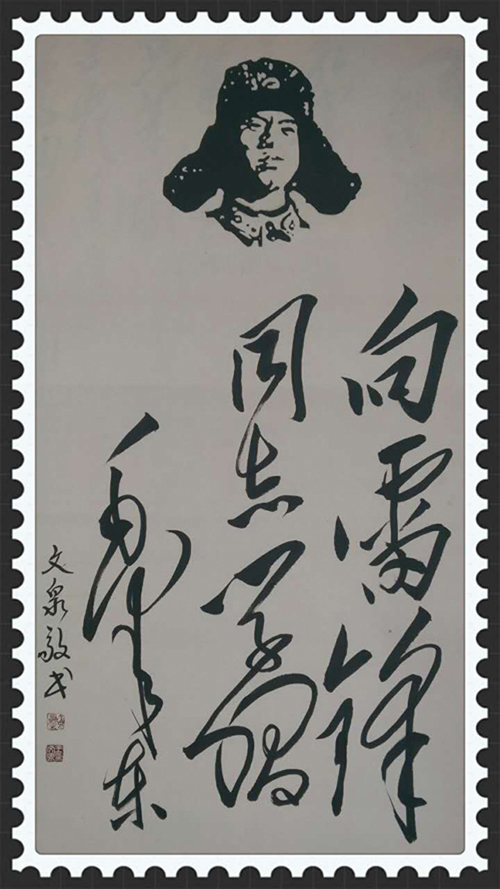 向雷锋
同志学习
毛泽东
文泉敬书